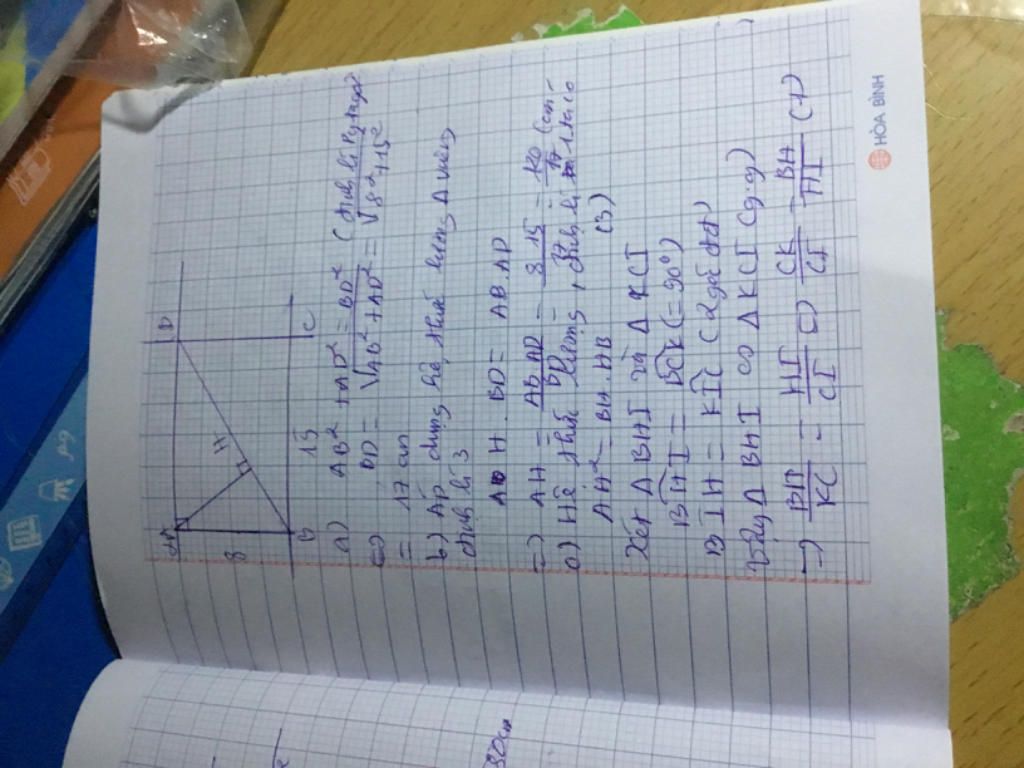 A
D
8
H
B
15
C
a) AB² + AD² = BD² (định lí Pytago)
<=> BD = √AB² + AD² = √8² + 15²
= 17 cm
b) Áp dụng hệ thức lượng Δ vuông
định lí 3
AH . BD = AB . AD
=) AH = AB.AD/BD = 8.15/17 = 120/17 (cm)
c) Hệ thức lượng, định lí 2 ta có
AH² = BH . HD (3)
Xét Δ BHI và Δ KCI
BHI = BCK (= 90°)
BIH = KIC (2 góc đđ)
Vậy Δ BHI ∽ Δ KCI (g.g)
=) BH/KC = HI/CI
CK/CI = BH/HI (1)
HÒA BÌNH
30cm